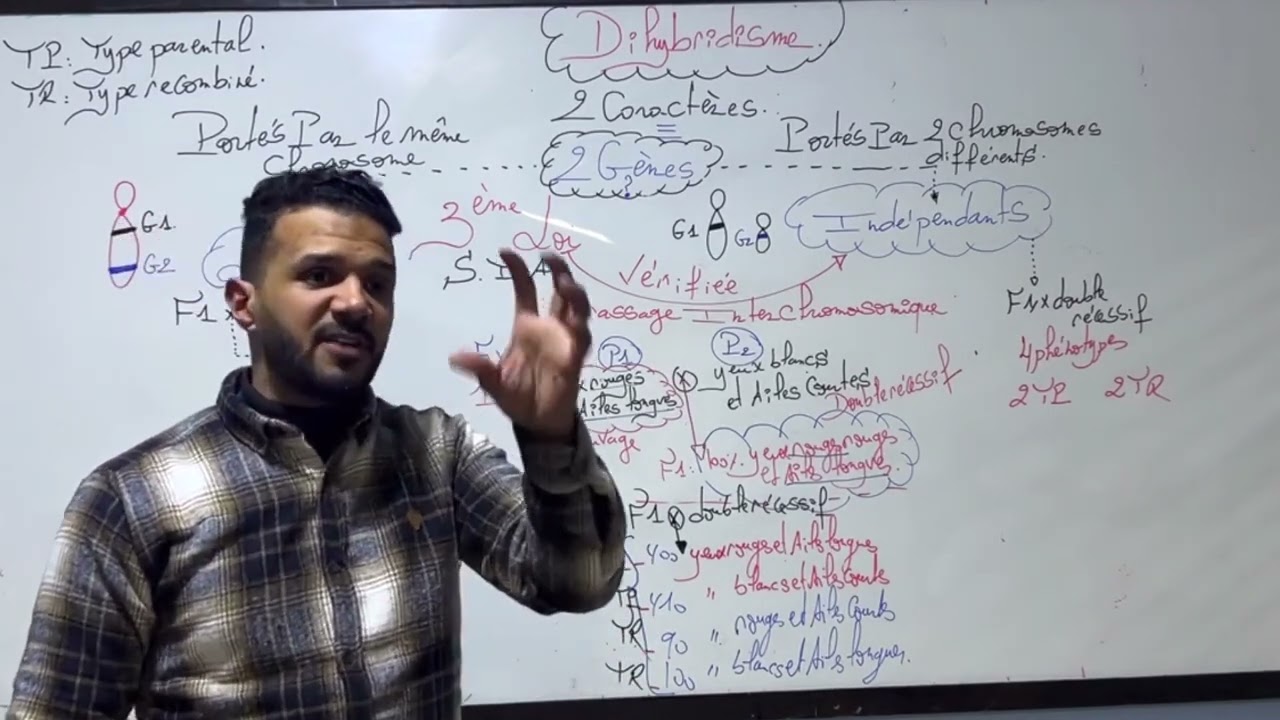 TP: Type parental.
TR: Type recombiné.
Dihybridisme.
2 Caractères.
2 Gènes
?
Portés Par le même
chromosome
Portés Par 2 chromosomes
différents.
G1
G2
F1 x
3ème Loi
S. I. A
Vérifiée
Interchromosomique
G1
G2
Indépendants
F1 x double
récessif
4 phénotypes
2TP 2TR
P1
rouges
Ailes longues
x
P2
yeux blancs
et Ailes Courtes
Double récessif
F1: 100% yeux rouges rouges
et Ailes longues
F1 x double récessif
400 yeux rouges et Ailes longues
TP 410 " blancs et Ailes Courtes
TR 90 " rouges et Ailes Courtes
TR 100 " blancs et Ailes longues.